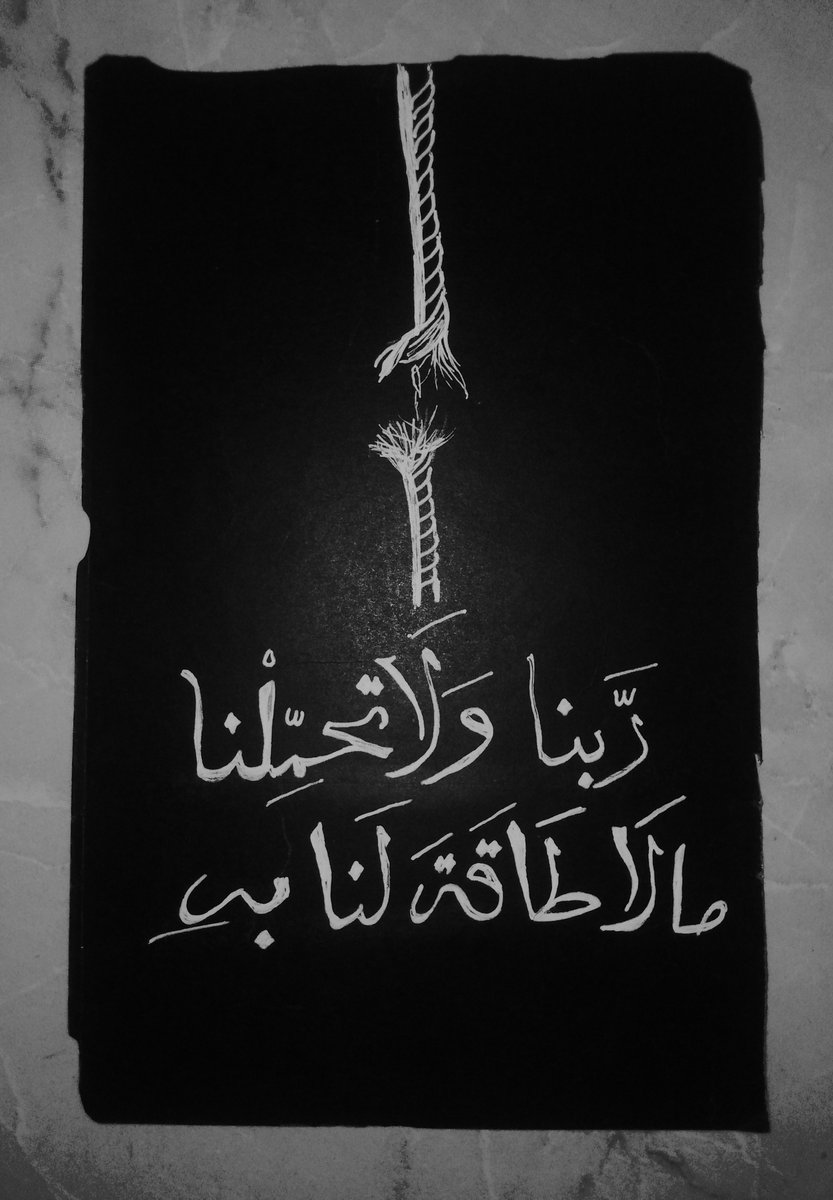 رَّبنا وَلَا تحمِّلْنا
مالَا طَاقَةَ لَنا بهِ